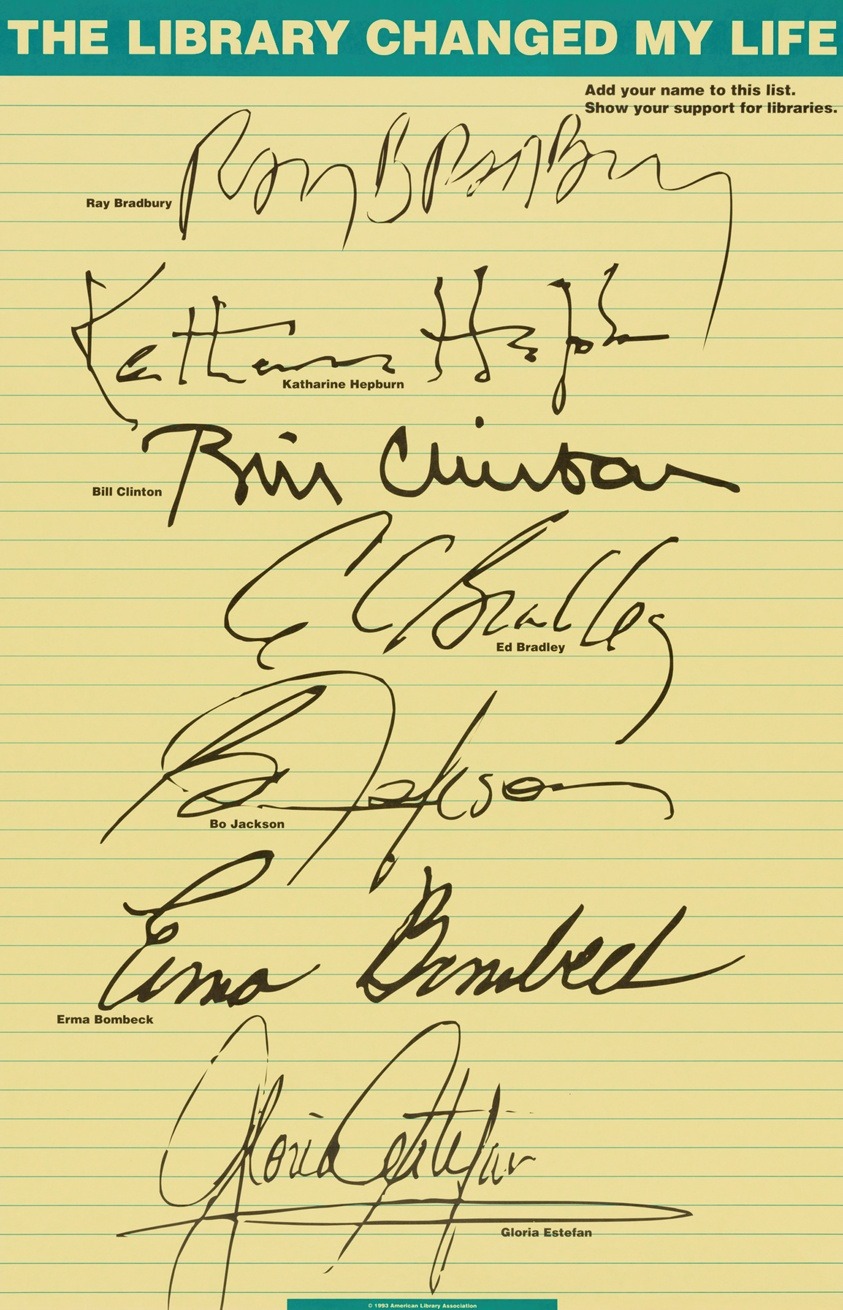 THE LIBRARY CHANGED MY LIFE
Add your name to this list.
Show your support for libraries.
Ray Bradbury
Ray Bradbury
Katharine Hepburn
Katharine Hepburn
Bill Clinton
Bill Clinton
Ed Bradley
Ed Bradley
Bo Jackson
Bo Jackson
Erma Bombeck
Erma Bombeck
Gloria Estefan
Gloria Estefan
© 1993 American Library Association